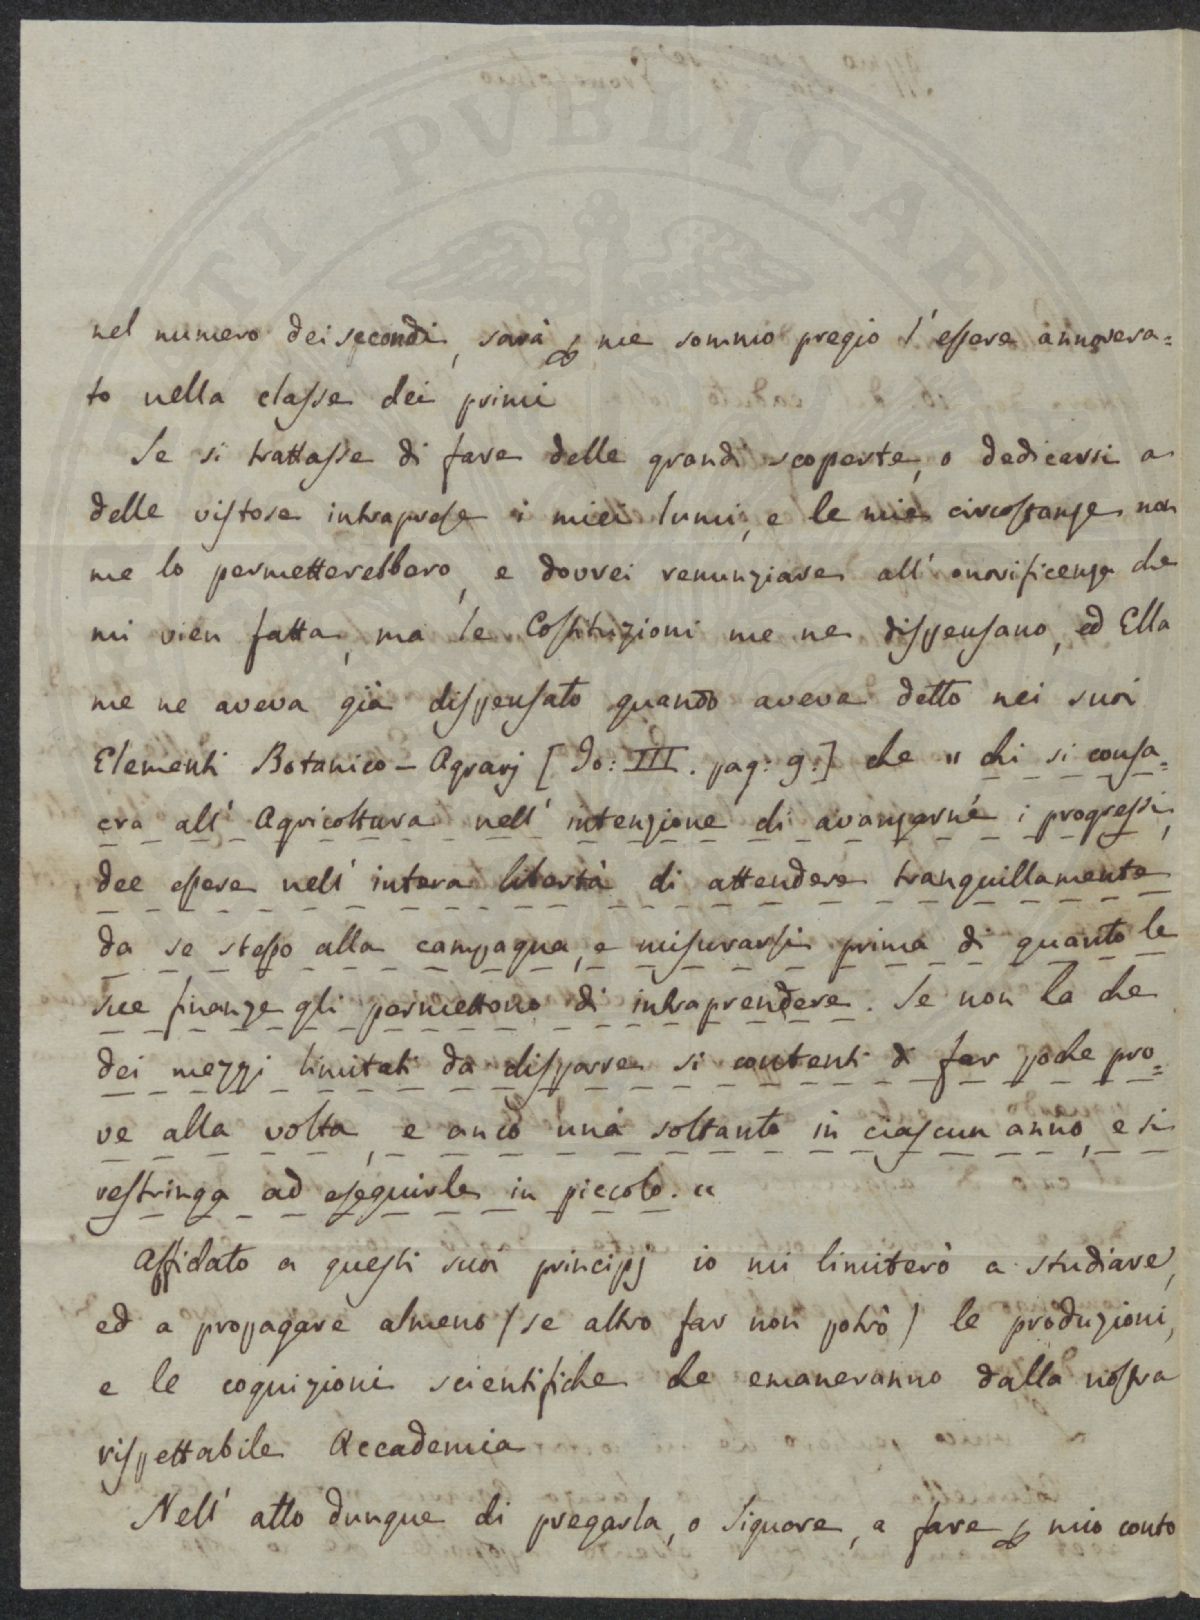 nel numero dei secondi, sarà p me sommo pregio l'essere annovera=
to nella classe dei primi
Se si trattasse di fare delle grandi scoperte, o dedicarsi a
delle vistose intraprese i miei lumi, e le mie circostanze non
me lo permetterebbero, e dovrei renunziare all'onorificenza che
mi vien fatta, ma le Costituzioni me ne dispensano, ed Ella
me ne aveva già dispensato quando aveva detto nei suoi
Elementi Botanico-Agrarj [To: III. pag: 9:] che " chi si consa=
cra all'Agricoltura nell'intenzione di avanzarne i progressi,
dee essere nell'intera libertà di attendere tranquillamente
da se stesso alla campagna, e misurarsi prima di quanto le
sue finanze gli permettono di intraprendere. Se non ha che
dei mezzi limitati da disporre si contenti di far poche pro=
ve alla volta, e anco una soltanto in ciascun anno, e si
restringa ad eseguirle in piccolo. "
Affidato a questi suoi principj io mi limiterò a studiare,
ed a propagare almeno (se altro far non potrò) le produzioni,
e le cognizioni scientifiche che emaneranno dalla nostra
rispettabile Accademia
Nell'atto dunque di pregarla, o Signore, a fare p mio conto